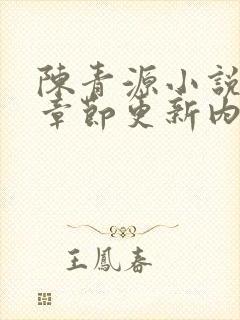 陳青源小說
章節更新內
王鳳春